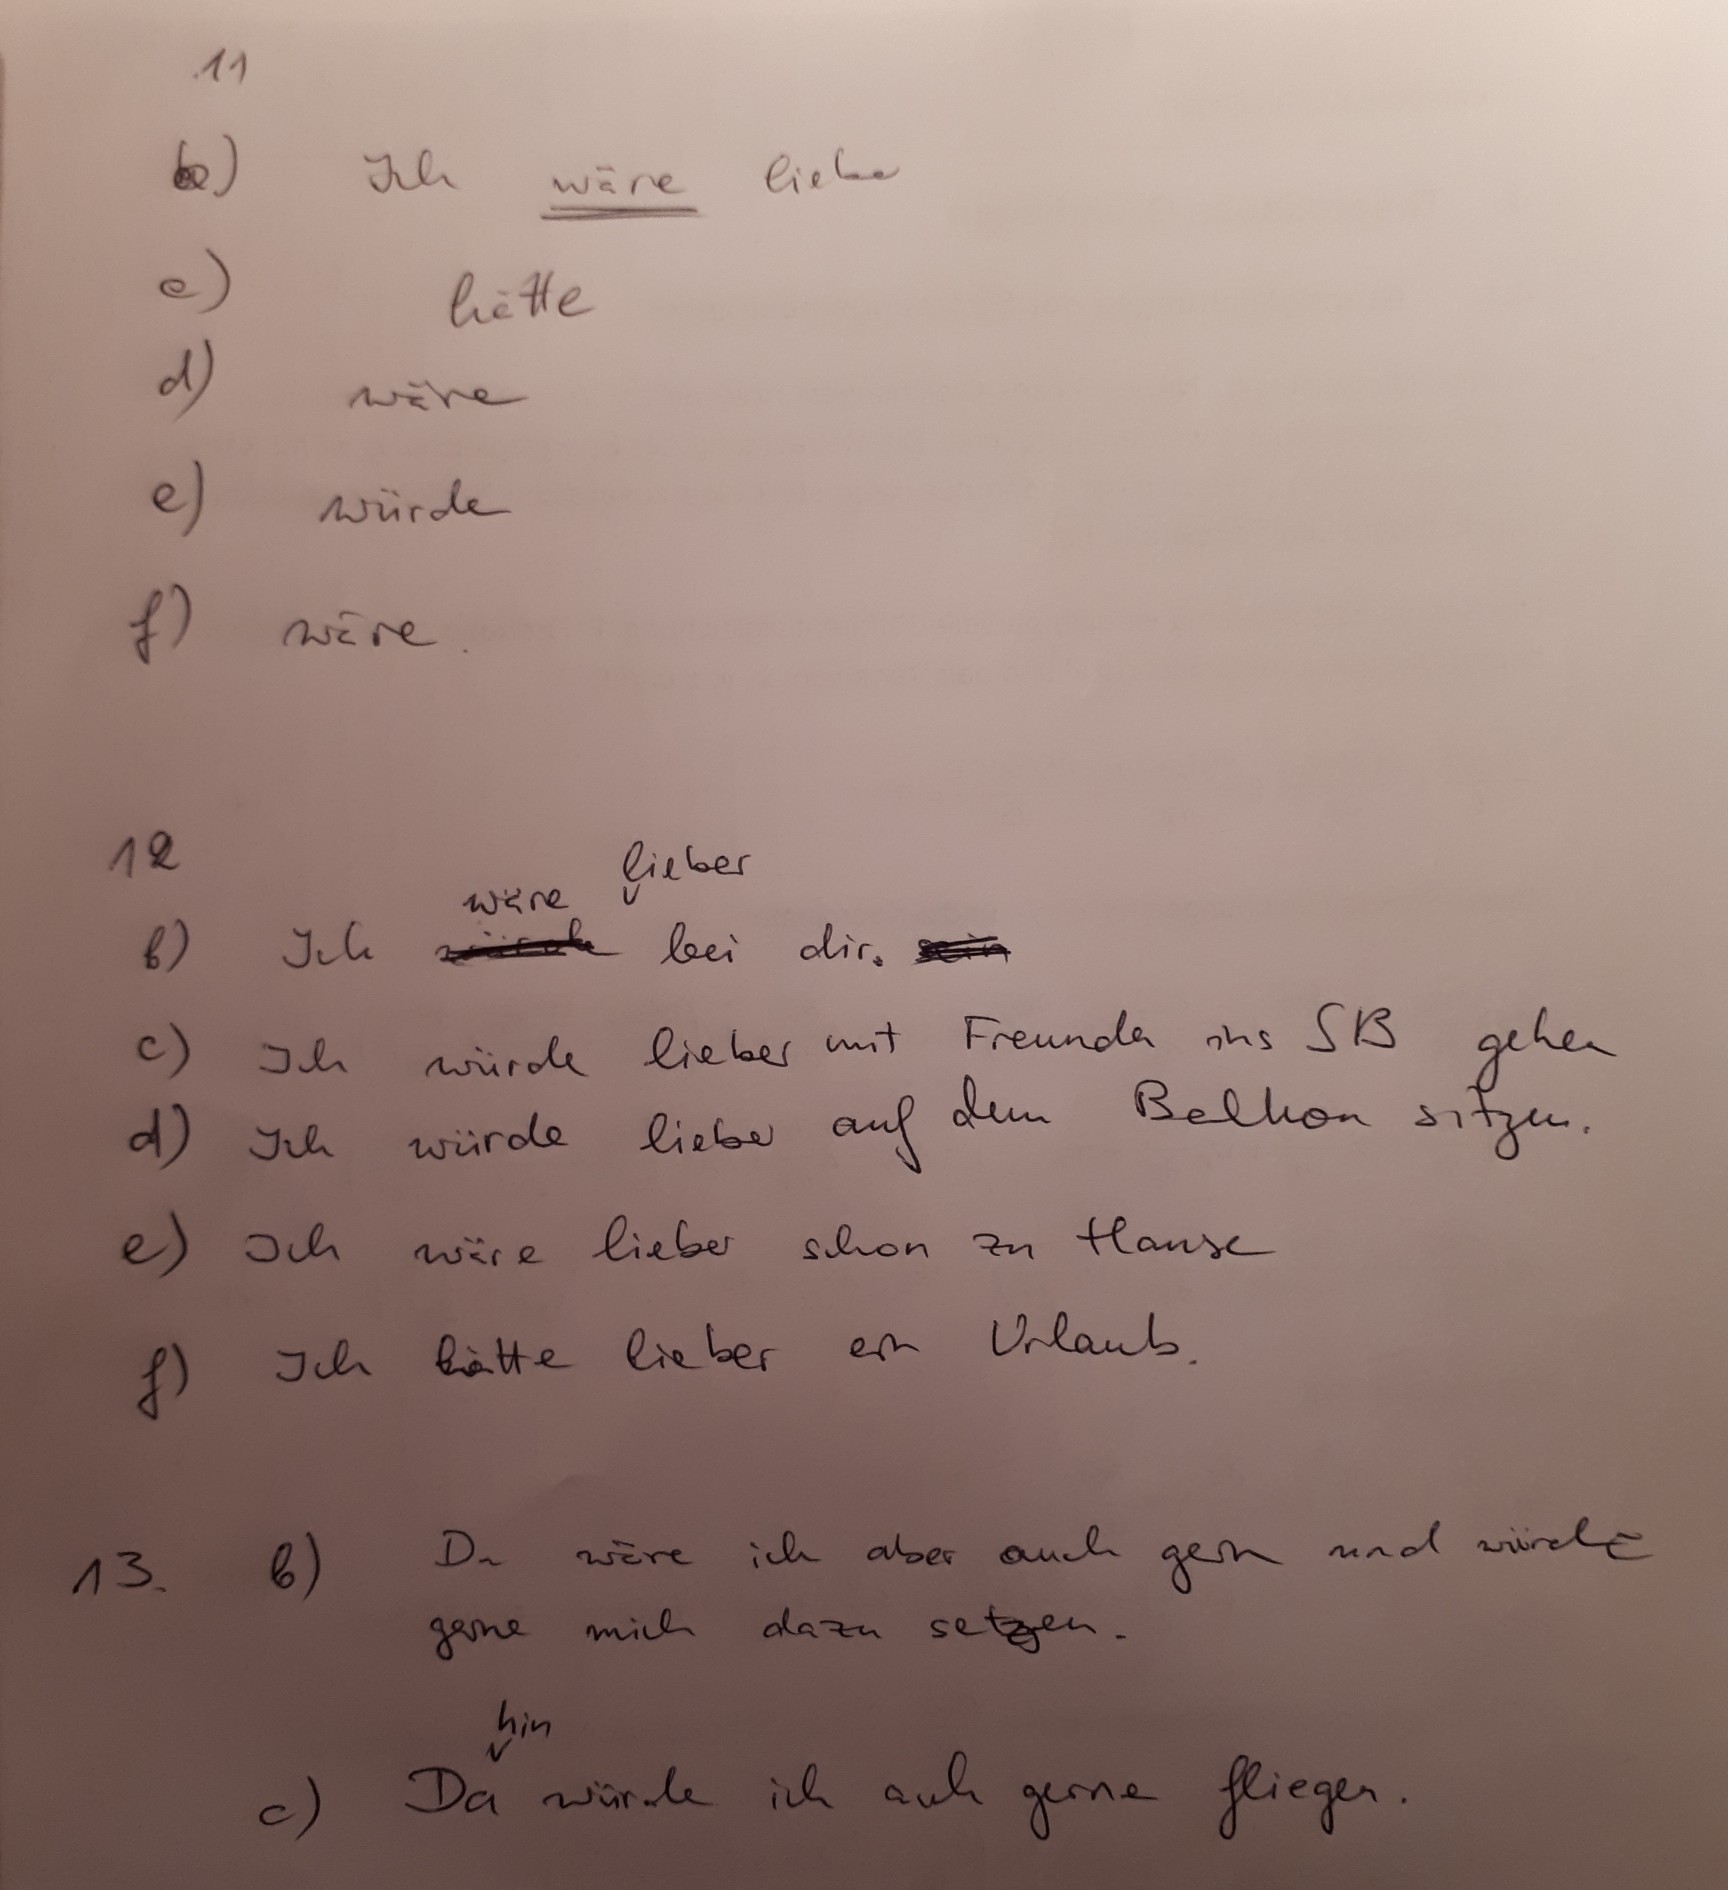 11
b) Ich wäre lieber
c) hätte
d) wäre
e) würde
f) wäre.
12
b) Ich wäre lieber bei dir.
c) Ich würde lieber mit Freunden ins SB gehen
d) Ich würde lieber auf dem Balkon sitzen.
e) Ich wäre lieber schon zu Hause
f) Ich hätte lieber ein Urlaub.
13. b) Da wäre ich aber auch gern und würde
gerne mich dazu setzen.
c) Da hin würde ich auch gerne fliegen.